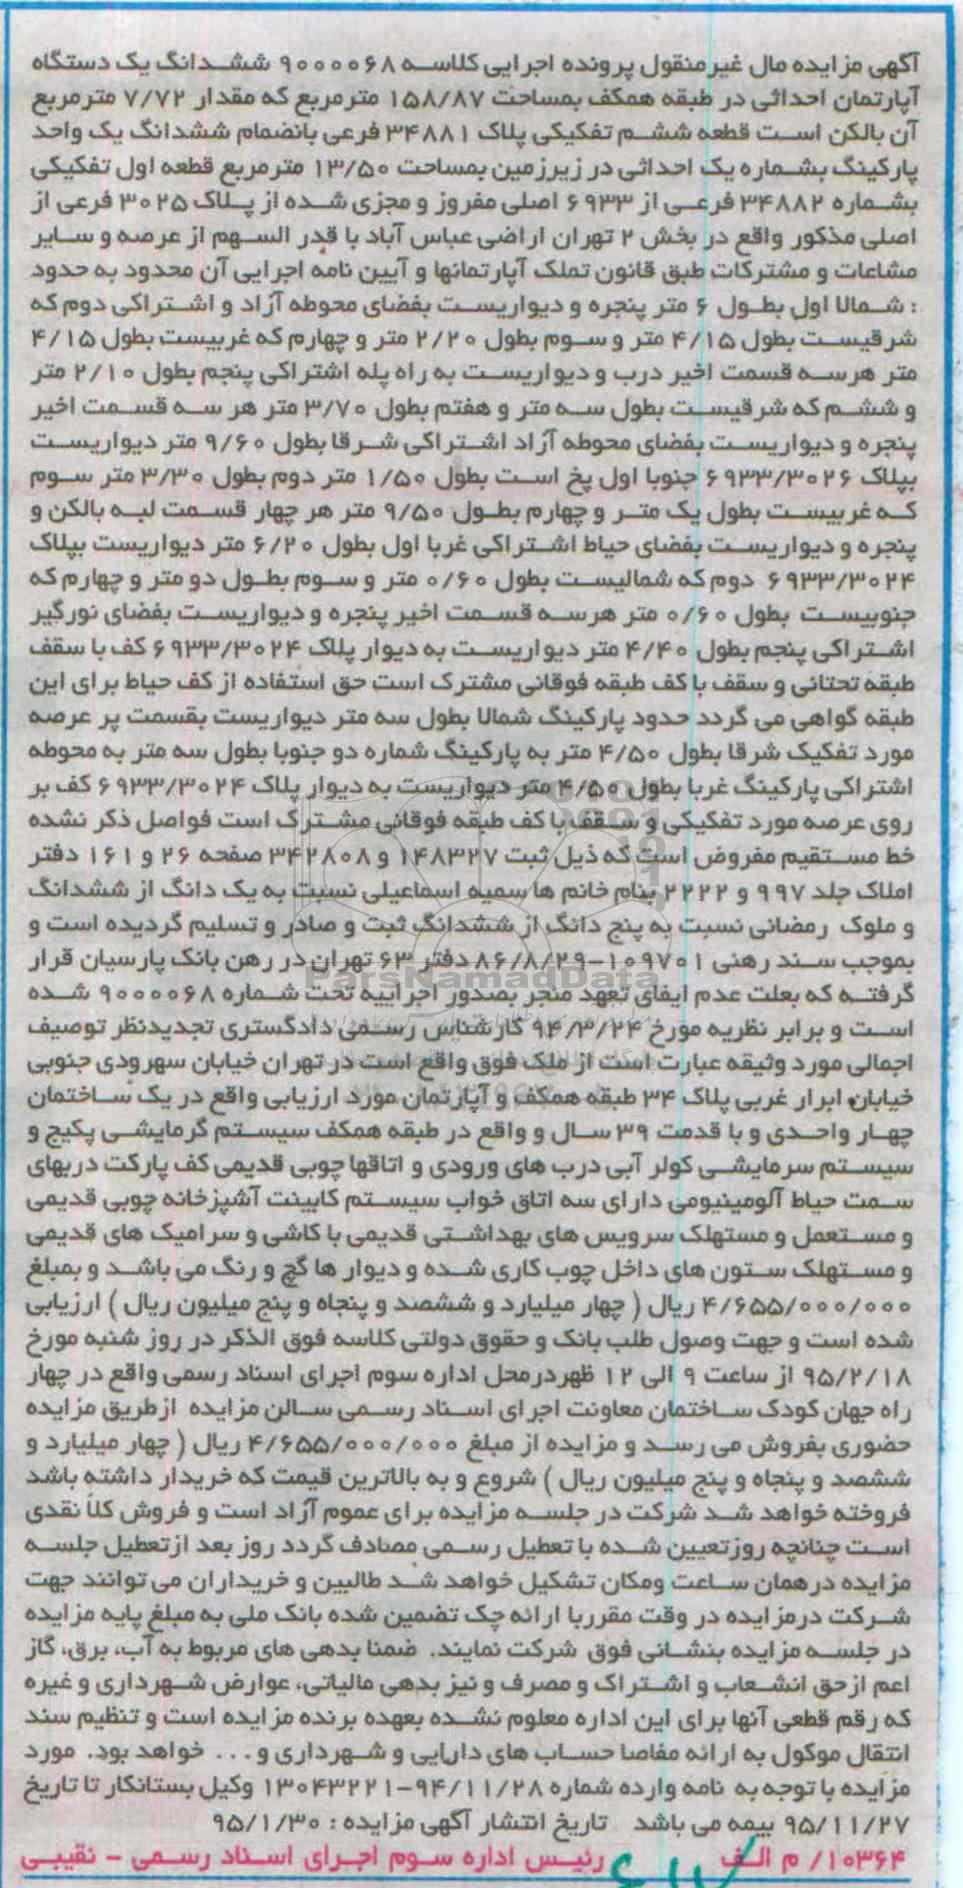 آگهی مزایده مال غیرمنقول پرونده اجرایی کلاسه ۹۰۰۰۰۶۸ ششدانگ یک دستگاه
آپارتمان احداثی در طبقه همکف بمساحت ۱۵۸/۸۷ مترمربع که مقدار ۷/۷۲ مترمربع
آن بالکن است قطعه ششم تفکیکی پلاک ۳۴۸۸۱ فرعی بانضمام ششدانگ یک واحد
پارکینگ بشماره یک احداثی در زیرزمین بمساحت ۱۳/۵۰ مترمربع قطعه اول تفکیکی
بشماره ۳۴۸۸۲ فرعی از ۶۹۳۳ اصلی مفروز و مجزی شده از پلاک ۳۰۲۵ فرعی از
اصلی مذکور واقع در بخش ۲ تهران اراضی عباس آباد با قدر السهم از عرصه و سایر
مشاعات و مشترکات طبق قانون تملک آپارتمانها و آیین نامه اجرایی آن محدود به حدود
: شمالا اول بطول ۶ متر پنجره و دیواریست بفضای محوطه آزاد و اشتراکی دوم که
شرقیست بطول ۴/۱۵ متر و سوم بطول ۲/۲۰ متر و چهارم که غربیست بطول ۴/۱۵
متر هرسه قسمت اخیر درب و دیواریست به راه پله اشتراکی پنجم بطول ۲/۱۰ متر
و ششم که شرقیست بطول سه متر و هفتم بطول ۳/۷۰ متر هر سه قسمت اخیر
پنجره و دیواریست بفضای محوطه آزاد اشتراکی شرقا بطول ۹/۶۰ متر دیواریست
بپلاک ۶۹۳۳/۳۰۲۶ جنوبا اول پخ است بطول ۱/۵۰ متر دوم بطول ۳/۳۰ متر سوم
که غربیست بطول یک متر و چهارم بطول ۹/۵۰ متر هر چهار قسمت لبه بالکن و
پنجره و دیواریست بفضای حیاط اشتراکی غربا اول بطول ۶/۲۰ متر دیواریست بپلاک
۶۹۳۳/۳۰۲۴ دوم که شمالیست بطول ۰/۶۰ متر و سوم بطول دو متر و چهارم که
جنوبیست بطول ۰/۶۰ متر هرسه قسمت اخیر پنجره و دیواریست بفضای نورگیر
اشتراکی پنجم بطول ۴/۴۰ متر دیواریست به دیوار پلاک ۶۹۳۳/۳۰۲۴ کف با سقف
طبقه تحتانی و سقف با کف طبقه فوقانی مشترک است حق استفاده از کف حیاط برای این
طبقه گواهی می گردد حدود پارکینگ شمالا بطول سه متر دیواریست بقسمت پر عرصه
مورد تفکیک شرقا بطول ۴/۵۰ متر به پارکینگ شماره دو جنوبا بطول سه متر به محوطه
اشتراکی پارکینگ غربا بطول ۴/۵۰ متر دیواریست به دیوار پلاک ۶۹۳۳/۳۰۲۴ کف بر
روی عرصه مورد تفکیکی و سقف با کف طبقه فوقانی مشترک است فواصل ذکر نشده
خط مستقیم مفروض است که ذیل ثبت ۱۴۸۳۲۷ و ۳۴۲۸۰۸ صفحه ۲۶ و ۱۶۱ دفتر
املاک جلد ۹۹۷ و ۲۲۲۲ بنام خانم ها سمیه اسماعیلی نسبت به یک دانگ از ششدانگ
و ملوک رمضانی نسبت به پنج دانگ از ششدانگ ثبت و صادر و تسلیم گردیده است و
بموجب سند رهنی ۱۰۹۷۰۱-۸۶/۸/۲۹ دفتر ۶۳ تهران در رهن بانک پارسیان قرار
گرفته که بعلت عدم ایفای تعهد منجر بصدور اجراییه تحت شماره ۹۰۰۰۰۶۸ شده
است و برابر نظریه مورخ ۹۴/۳/۲۴ کارشناس رسمی دادگستری تجدیدنظر توصیف
اجمالی مورد وثیقه عبارت است از ملک فوق واقع است در تهران خیابان سهرودی جنوبی
خیابان ابرار غربی پلاک ۳۴ طبقه همکف و آپارتمان مورد ارزیابی واقع در یک ساختمان
چهار واحدی و با قدمت ۳۹ سال و واقع در طبقه همکف سیستم گرمایشی پکیج و
سیستم سرمایشی کولر آبی درب های ورودی و اتاقها چوبی قدیمی کف پارکت دربهای
سمت حیاط آلومینیومی دارای سه اتاق خواب سیستم کابینت آشپزخانه چوبی قدیمی
و مستعمل و مستهلک سرویس های بهداشتی قدیمی با کاشی و سرامیک های قدیمی
و مستهلک ستون های داخل چوب کاری شده و دیوار ها گچ و رنگ می باشد و بمبلغ
۴/۶۵۵/۰۰۰/۰۰۰ ریال ( چهار میلیارد و ششصد و پنجاه و پنج میلیون ریال ) ارزیابی
شده است و جهت وصول طلب بانک و حقوق دولتی کلاسه فوق الذکر در روز شنبه مورخ
۹۵/۲/۱۸ از ساعت ۹ الی ۱۲ ظهردرمحل اداره سوم اجرای اسناد رسمی واقع در چهار
راه جهان کودک ساختمان معاونت اجرای اسناد رسمی سالن مزایده ازطریق مزایده
حضوری بفروش می رسد و مزایده از مبلغ ۴/۶۵۵/۰۰۰/۰۰۰ ریال ( چهار میلیارد و
ششصد و پنجاه و پنج میلیون ریال ) شروع و به بالاترین قیمت که خریدار داشته باشد
فروخته خواهد شد شرکت در جلسه مزایده برای عموم آزاد است و فروش کلاً نقدی
است چنانچه روزتعیین شده با تعطیل رسمی مصادف گردد روز بعد ازتعطیل جلسه
مزایده درهمان ساعت ومکان تشکیل خواهد شد طالبین و خریداران می توانند جهت
شرکت درمزایده در وقت مقرربا ارائه چک تضمین شده بانک ملی به مبلغ پایه مزایده
در جلسه مزایده بنشانی فوق شرکت نمایند. ضمنا بدهی های مربوط به آب، برق، گاز
اعم ازحق انشعاب و اشتراک و مصرف و نیز بدهی مالیاتی، عوارض شهرداری و غیره
که رقم قطعی آنها برای این اداره معلوم نشده بعهده برنده مزایده است و تنظیم سند
انتقال موکول به ارائه مفاصا حساب های دارایی و شهرداری و... خواهد بود. مورد
مزایده با توجه به نامه وارده شماره ۱۳۰۴۳۲۲۱-۹۴/۱۱/۲۸ وکیل بستانکار تا تاریخ
۹۵/۱۱/۲۷ بیمه می باشد تاریخ انتشار آگهی مزایده : ۹۵/۱/۳۰
۱۰۳۶۴/ م الف رئیس اداره سوم اجرای اسناد رسمی - نقیبی
ParsNamadData